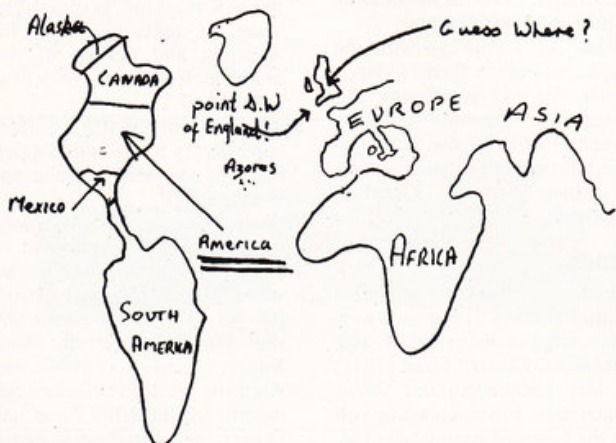 Alaska
CANADA
Guess Where?
point S.W
of England!
EUROPE
ASIA
Azores
Mexico
America
AFRICA
SOUTH
AMERICA